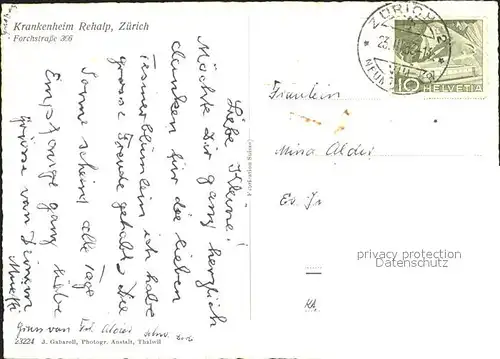 Krankenheim Rehalp, Zürich
Forchstraße 366
ZÜRICH 2
10 HELVETIA
Liebe Kleine!
Möchte Dir ganz herzlich
danken für die lieben
ich habe
grosse Freude gehabt. Die
Sonne scheint alle Tage
Empfange ganz liebe
Grüsse von Deinem
Fräulein
Mina Alder
privacy protection
Datenschutz
Gruss von Frl. Alder
23224 J. Gaberell, Photogr. Anstalt, Thalwil